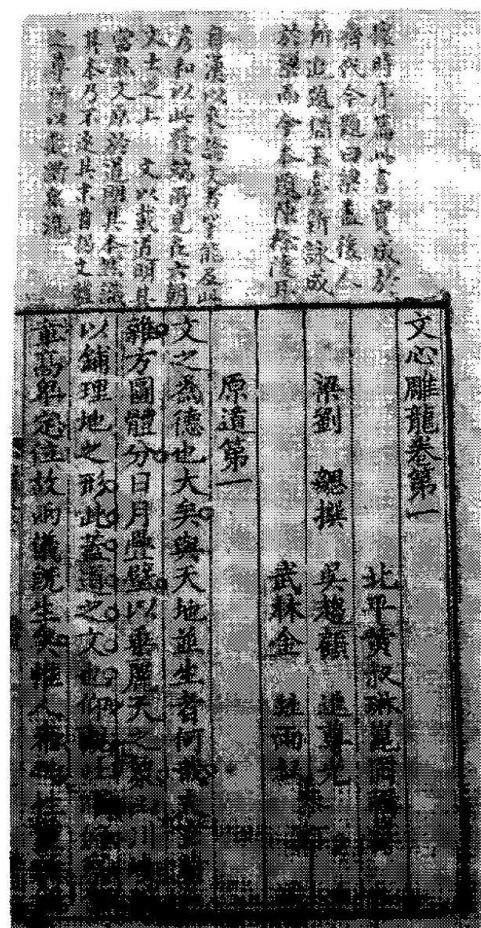 據時序篇此書實成於
齊代今題曰梁蓋後人
所追題猶玉臺新詠成
於梁而今本題陳徐陵耳
自漢以來論文者罕能及此
彥和以此發端所見在六朝
文士之上 文以載道明其
當然文原於道明其本然識
其本乃不逐其末首揭文體
之尊所以截斷衆流
文心雕龍卷第一
北平黃叔琳崑圃
梁劉 勰撰 吳趨顧 進尊光
武林金 甡雨叔
原道第一
文之為德也大矣與天地並生者何哉夫
雜方圓體分日月疊璧以垂麗天之象山川
以鋪理地之形此蓋道之文也仰觀
章高卑定位故兩儀既生矣惟人參